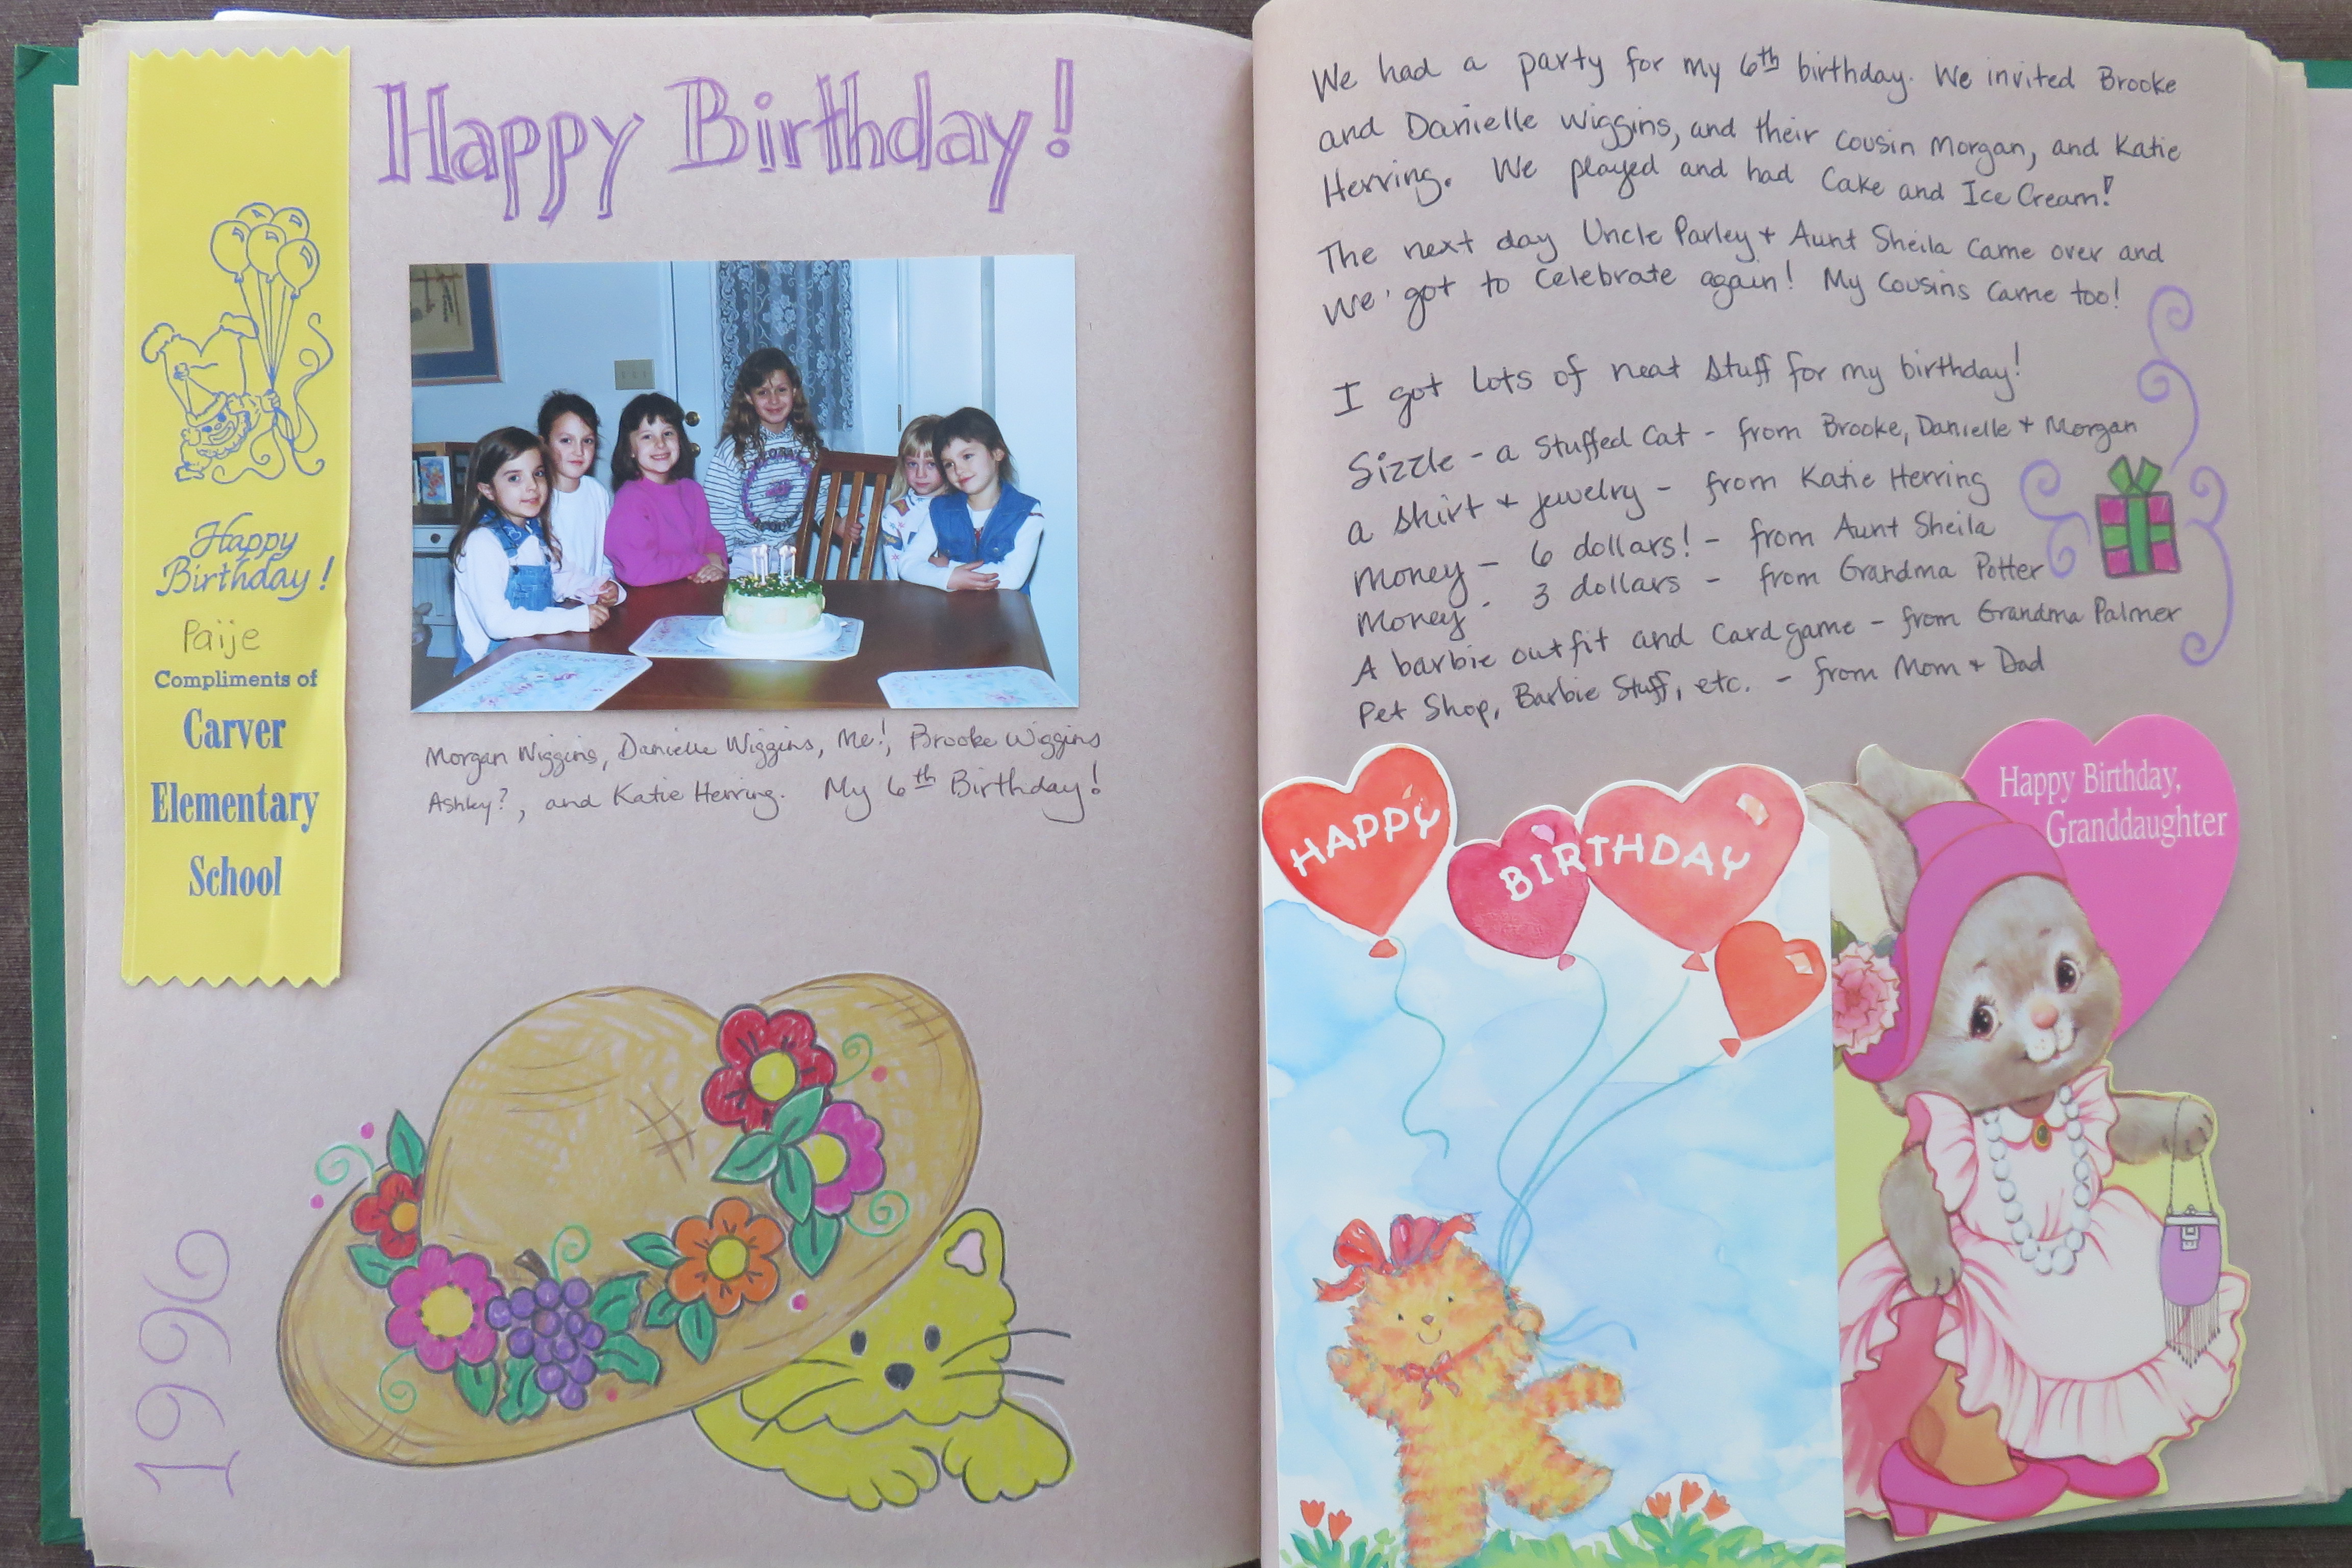 Happy Birthday!
Happy
Birthday!
Paije
Compliments of
Carver
Elementary
School
Morgan Wiggins, Danielle Wiggins, Me!, Brooke Wiggins
Ashley?, and Katie Herring. My 6th Birthday!
1996
We had a party for my 6th birthday. We invited Brooke
and Danielle Wiggins, and their cousin Morgan, and Katie
Herring. We played and had Cake and Ice Cream!
The next day Uncle Parley + Aunt Sheila came over and
we got to celebrate again! My cousins came too!
I got lots of neat stuff for my birthday!
Sizzle - a Stuffed Cat - from Brooke, Danielle + Morgan
a shirt + jewelry - from Katie Herring
Money - 6 dollars! - from Aunt Sheila
Money - 3 dollars - from Grandma Potter
A barbie outfit and Card game - from Grandma Palmer
Pet Shop, Barbie Stuff, etc. - from Mom + Dad
HAPPY
BIRTHDAY
Happy Birthday,
Granddaughter